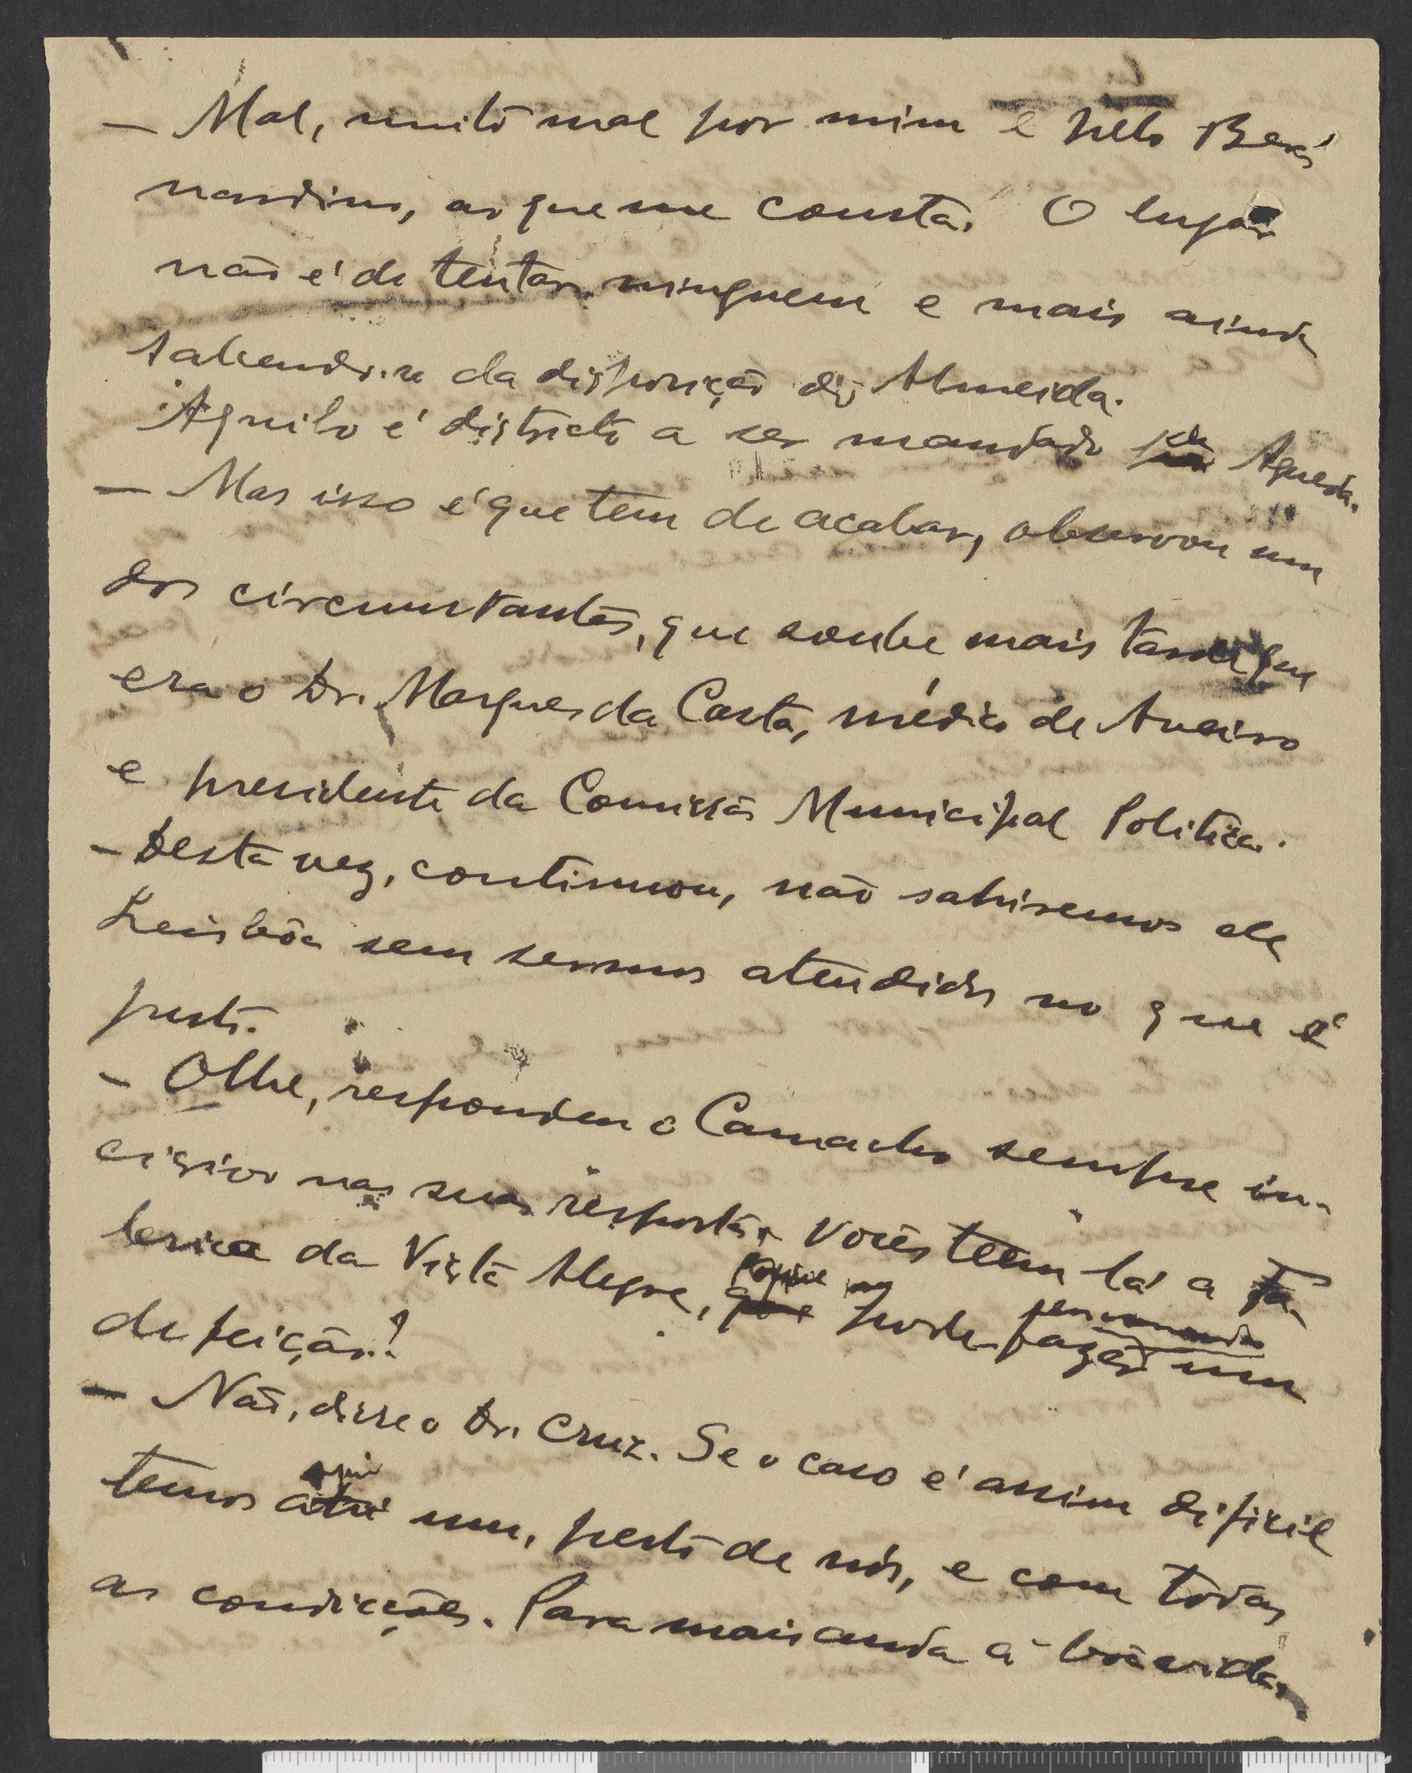 — Mal, muito mal por mim e pelo Ber-
nardino, ao que me consta. O lugar
não é de tentar ninguem e mais ainda
sabendo-se da disposição do Almeida.
Aquilo é districto a ser mandado de Agueda.
— Mas isso é que tem de acabar, observou um
dos circumstantes, que soube mais tarde que
era o Dr. Marques da Costa, médico de Aveiro
e presidente da Comissão Municipal Politica.
— Desta vez, continuou, não sahiremos de
Leisbôa sem sermos atendidos no que é
justo.
— Olhe, respondeu o Camacho sempre in-
cisivo nas suas respostas. Vocês teem lá a Fa-
brica da Vista Alegre, porque não
pode fazer um
de feição?
— Não, disse o Dr. Cruz. Se o caso é assim dificil
temos aqui um, perto de nós, e com todas
as condicções. Para mais anda á bôa vida,